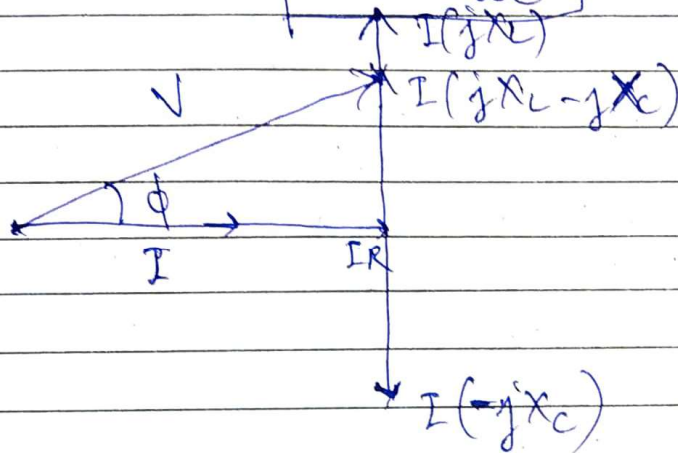 I(jXL)
V
I(jXL-jXC)
ϕ
I
IR
I(-jXC)